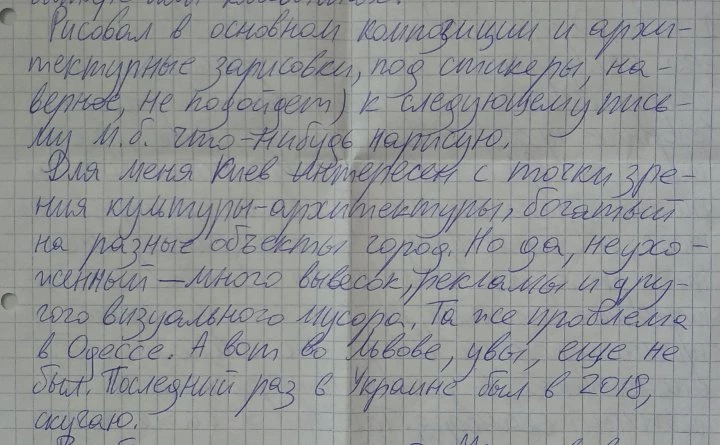 Рисовал в основном композиции и архи-
тектурные зарисовки, под стикеры, на-
верное, не подойдет) к следующему пись-
му м.б. что-нибудь нарисую.
Для меня Киев интересен с точки зре-
ния культуры-архитектуры, богатый
на разные объекты город. Но да, неухо-
женный – много вывесок, рекламы и дру-
гого визуального мусора. Та же проблема
в Одессе. А вот во Львове, увы, еще не
был. Последний раз в Украине был в 2018,
скучаю.